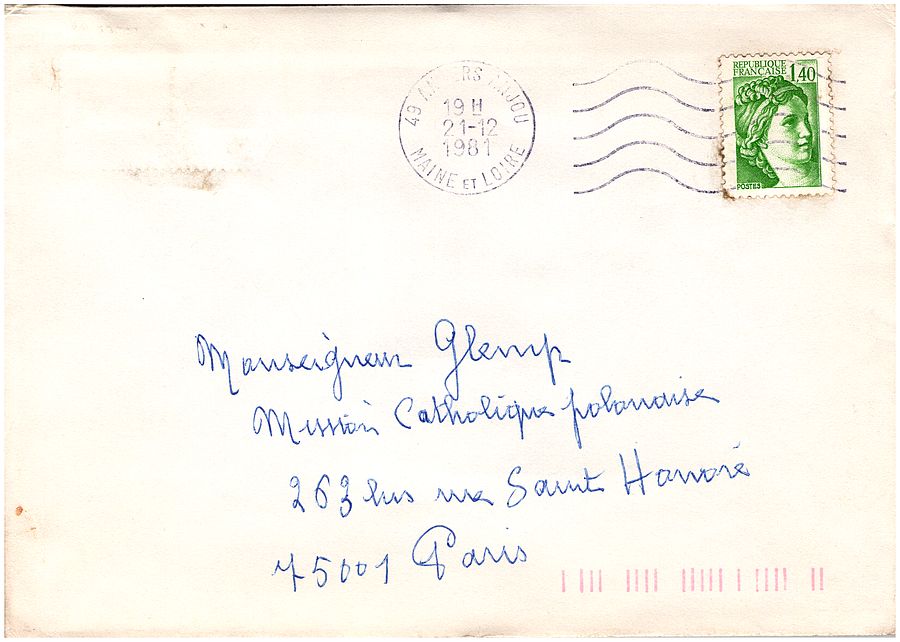 RÉPUBLIQUE
FRANÇAISE 1,40
POSTES
49 ANGERS ANJOU
19 H
21-12
1981
MAINE ET LOIRE
Monseigneur Glemp
Mission Catholique polonaise
263 bis rue Saint Honoré
75001 Paris